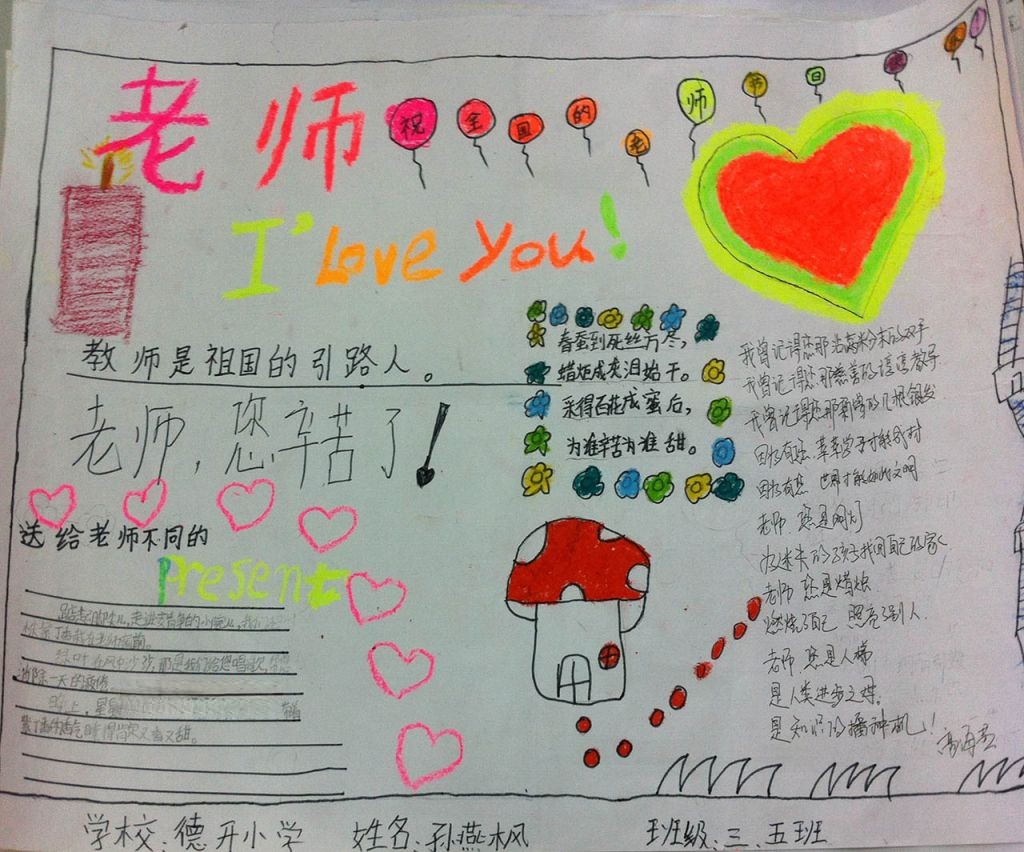 老师
祝全国的老师节日快乐
I'Love You!
教师是祖国的引路人。
老师,您辛苦了!
春蚕到死丝方尽,
蜡炬成灰泪始干。
采得百花成蜜后,
为谁辛苦为谁甜。
送给老师不同的
Present
消除一天的疲倦
晚上,星星
我曾记得您那沾满粉末的双手
我曾记得您那慈善的谆谆教导
我曾记得您那 的几根银发
因为有您 莘莘学子才能成材
因为有您 世界才能如此文明
老师 您是
为迷失的孩子找回自己的家
老师 您是蜡烛
燃烧了自己 照亮了别人
老师 您是人梯
是人类进步之
是知识的播种机!
学校:德开小学 姓名:孙燕枫 班级:三、五班